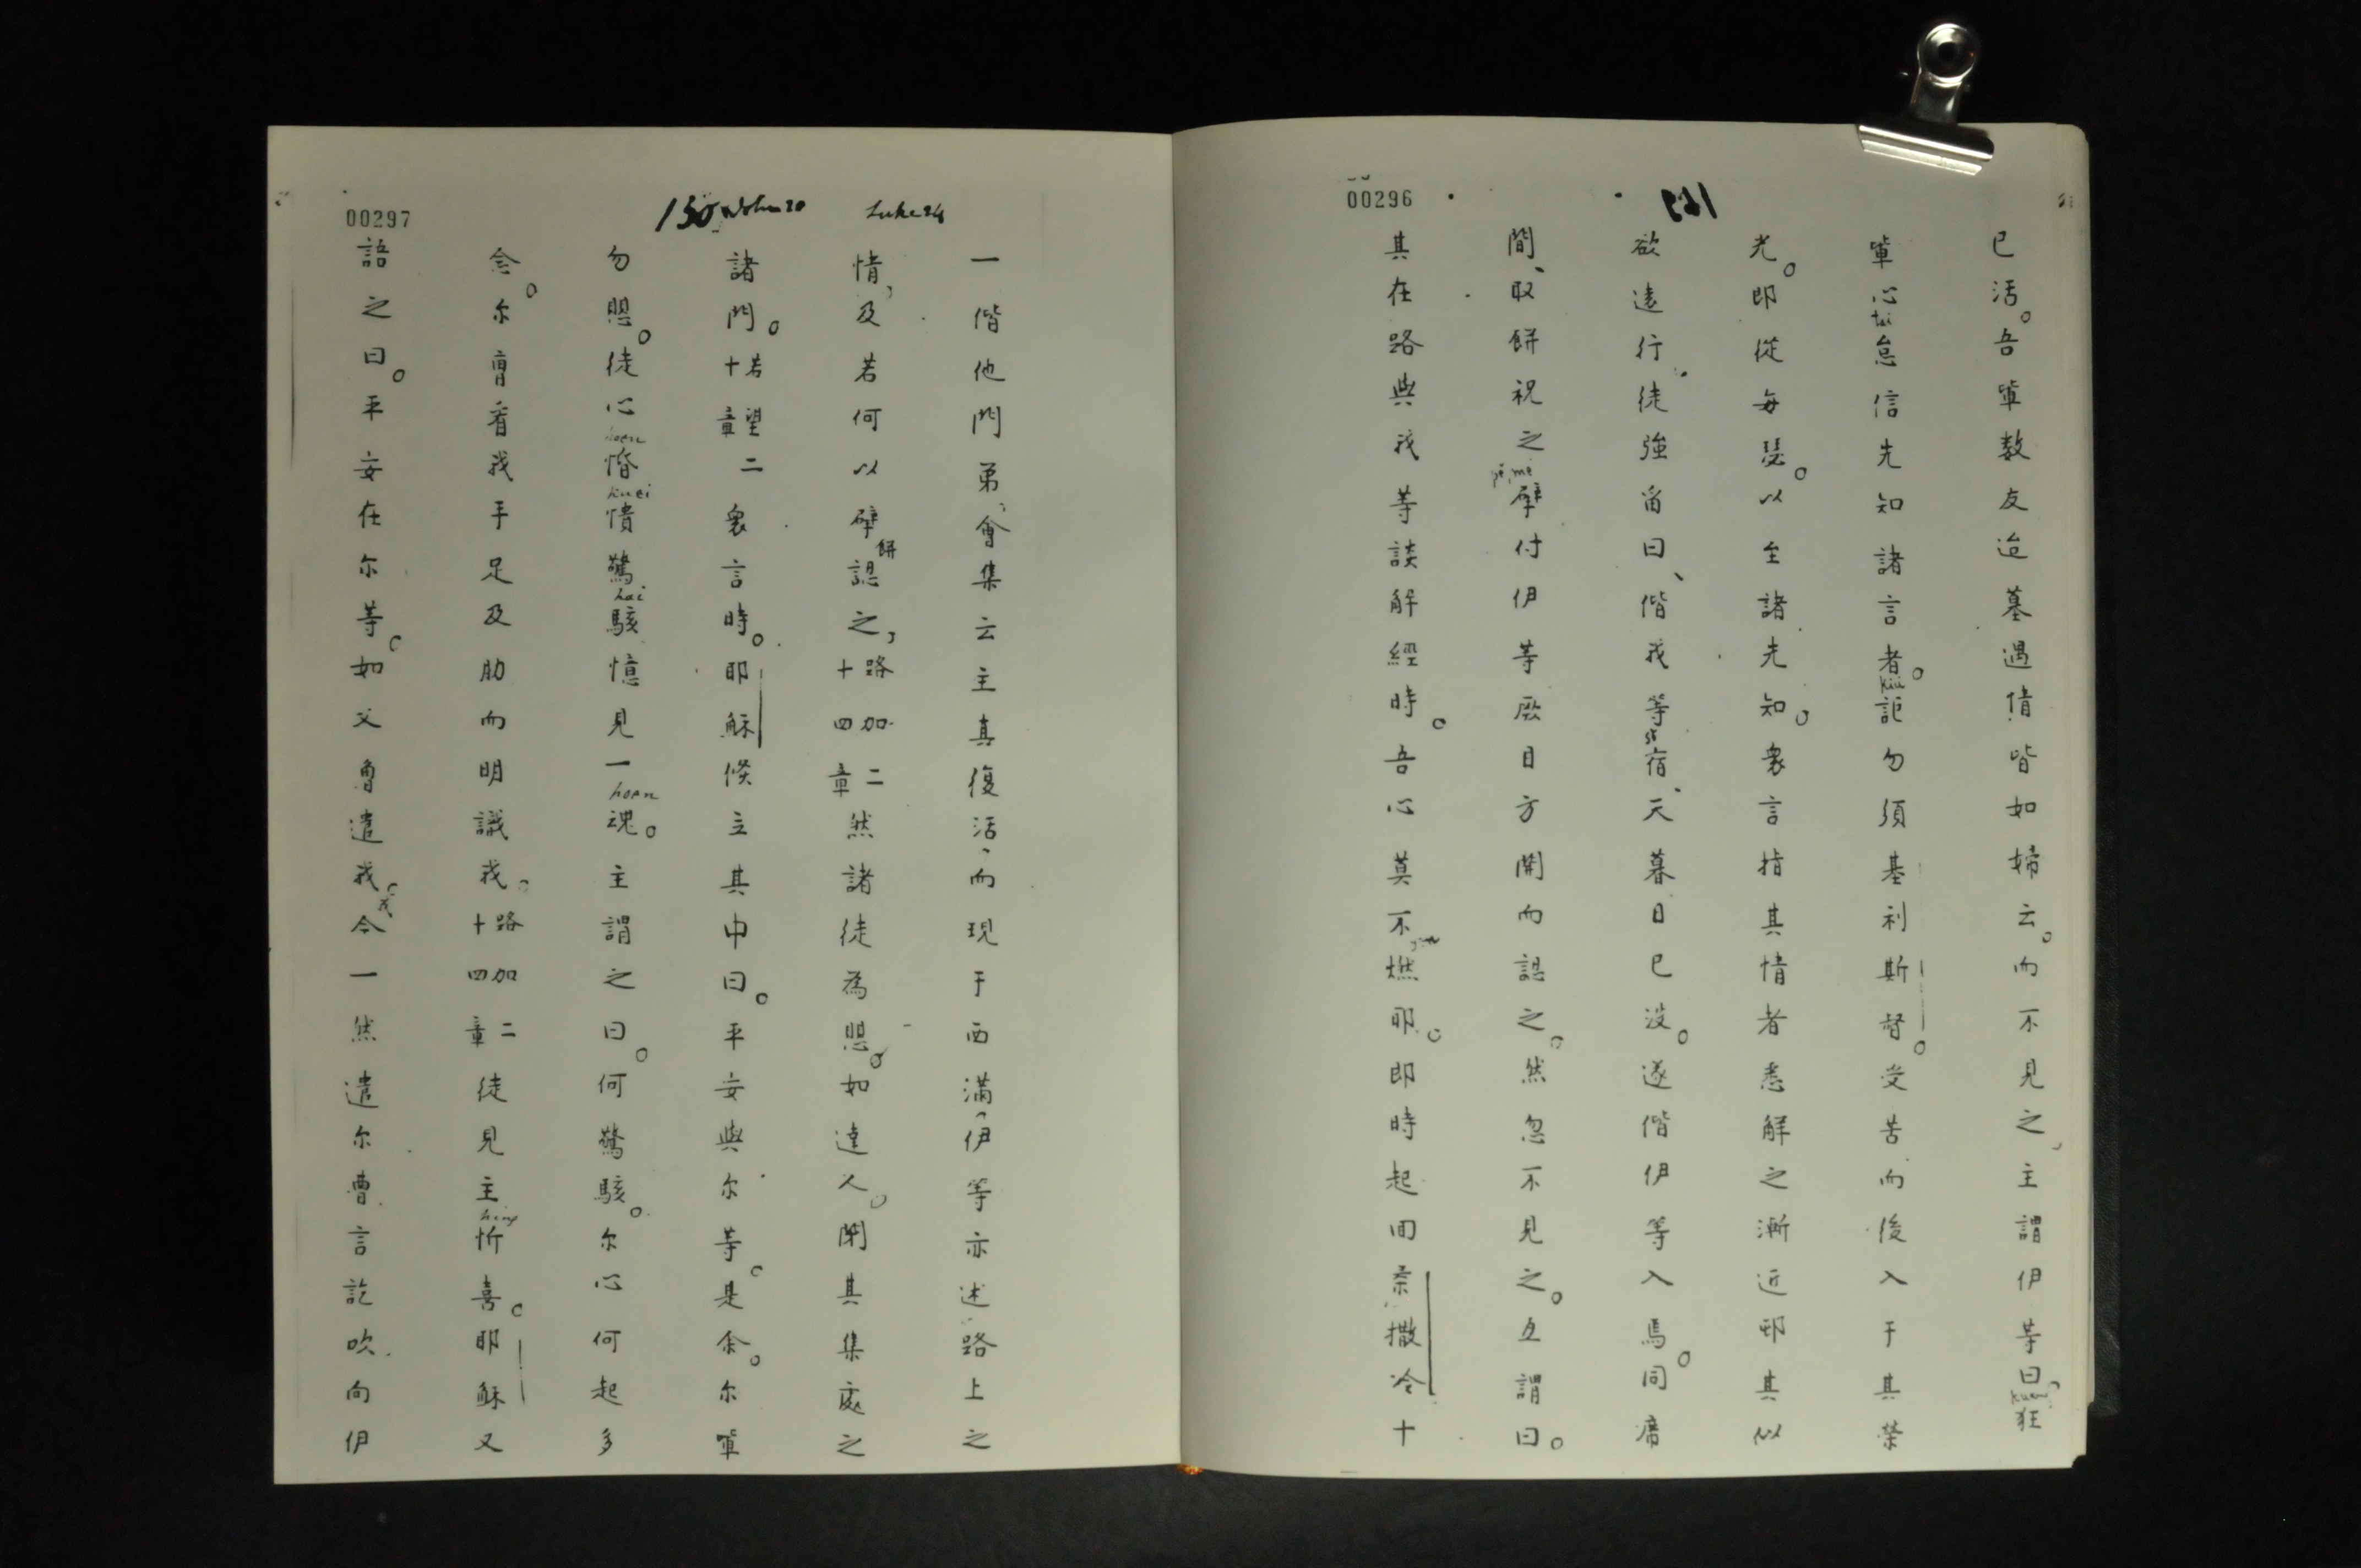 00296
149
已活。吾輩數友迨墓遇情皆如婦云。而不見之，主謂伊等曰，狂
輩心怠信先知諸言者。詎勿須基利斯督。受苦而後入于其榮
tai
kiu
光。即從每瑟。以至諸先知。衆言指其情者悉解之漸近邨其似
欲遠行、徒強畄曰、偕我等宿、天暮日已沒。遂偕伊等入焉。同席
間、取餅祝之擘付伊等厥目方開而認之。然忽不見之。互謂曰。
其在路與我等談解經時。吾心莫不燃耶。即時起回柰撒冷十
00297
150 John 20 Luke 24
一偕他門弟、會集云主真復活、而現于西滿，伊等亦述路上之
情，及若何以擘餅認之，路加二十四章然諸徒為愳。如達人。閉其集處之
諸門。若望二十章衆言時。耶穌倏立其中曰。平安與尔等。是余。尔輩
勿愳。徒心惛憒驚駭憶見一魂。主謂之曰。何驚駭。尔心何起多
hoen
kuei
hai
hoen
念。尔曹看我手足及肋而明識我。路加二十四章徒見主忻喜。耶穌又
hing
語之曰。平安在尔等。如父曾遣我。我今一然遣尔曹言訖吹向伊